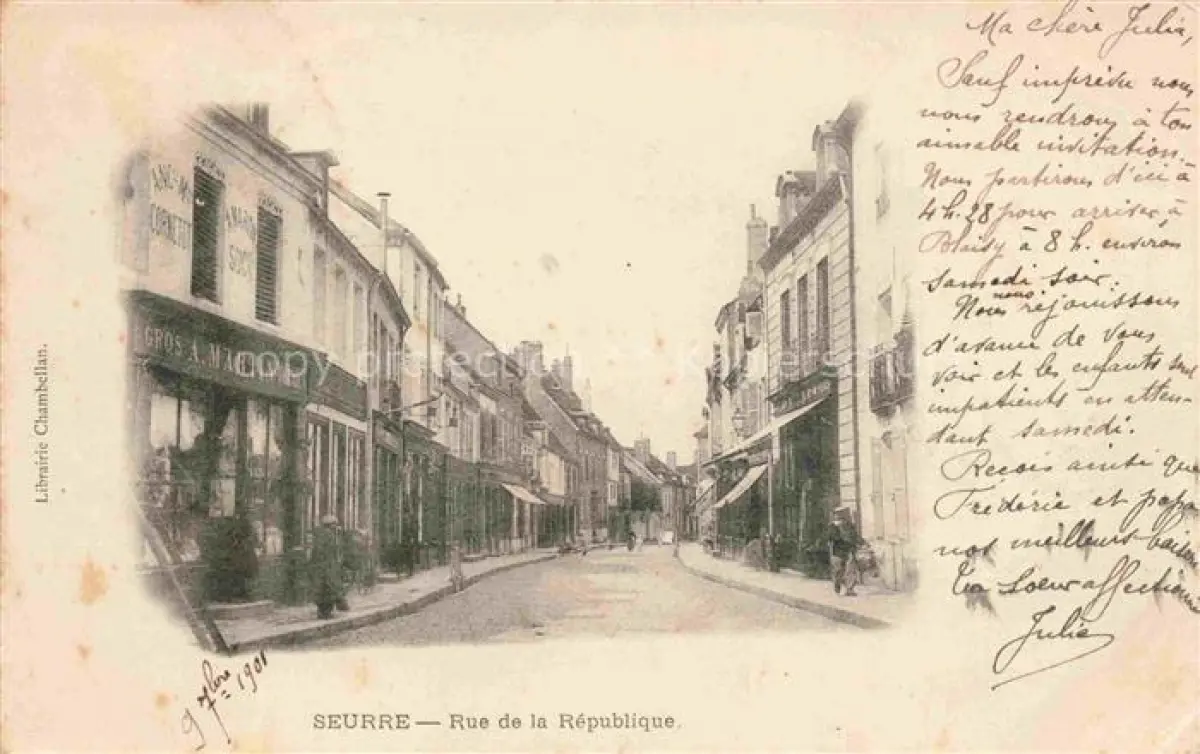 Ma chère Julia,
Sauf imprévu nous
nous rendrons à ton
aimable invitation.
Nous partirons d'ici à
4h.28 pour arriver à
Blaisy à 8 h. environ
samedi soir.
Nous nous réjouissons
d'avance de vous
voir et les enfants sont
impatients en atten-
dant samedi.
Reçois ainsi que
Frédéric et papa
nos meilleurs baisers
Ta Soeur affectionnée
Julie
ANC.NE M
CORNETET
ANC.NE M
SUC
GROS A. MA
Librairie Chambellan.
9 7bre 1901
SEURRE — Rue de la République.